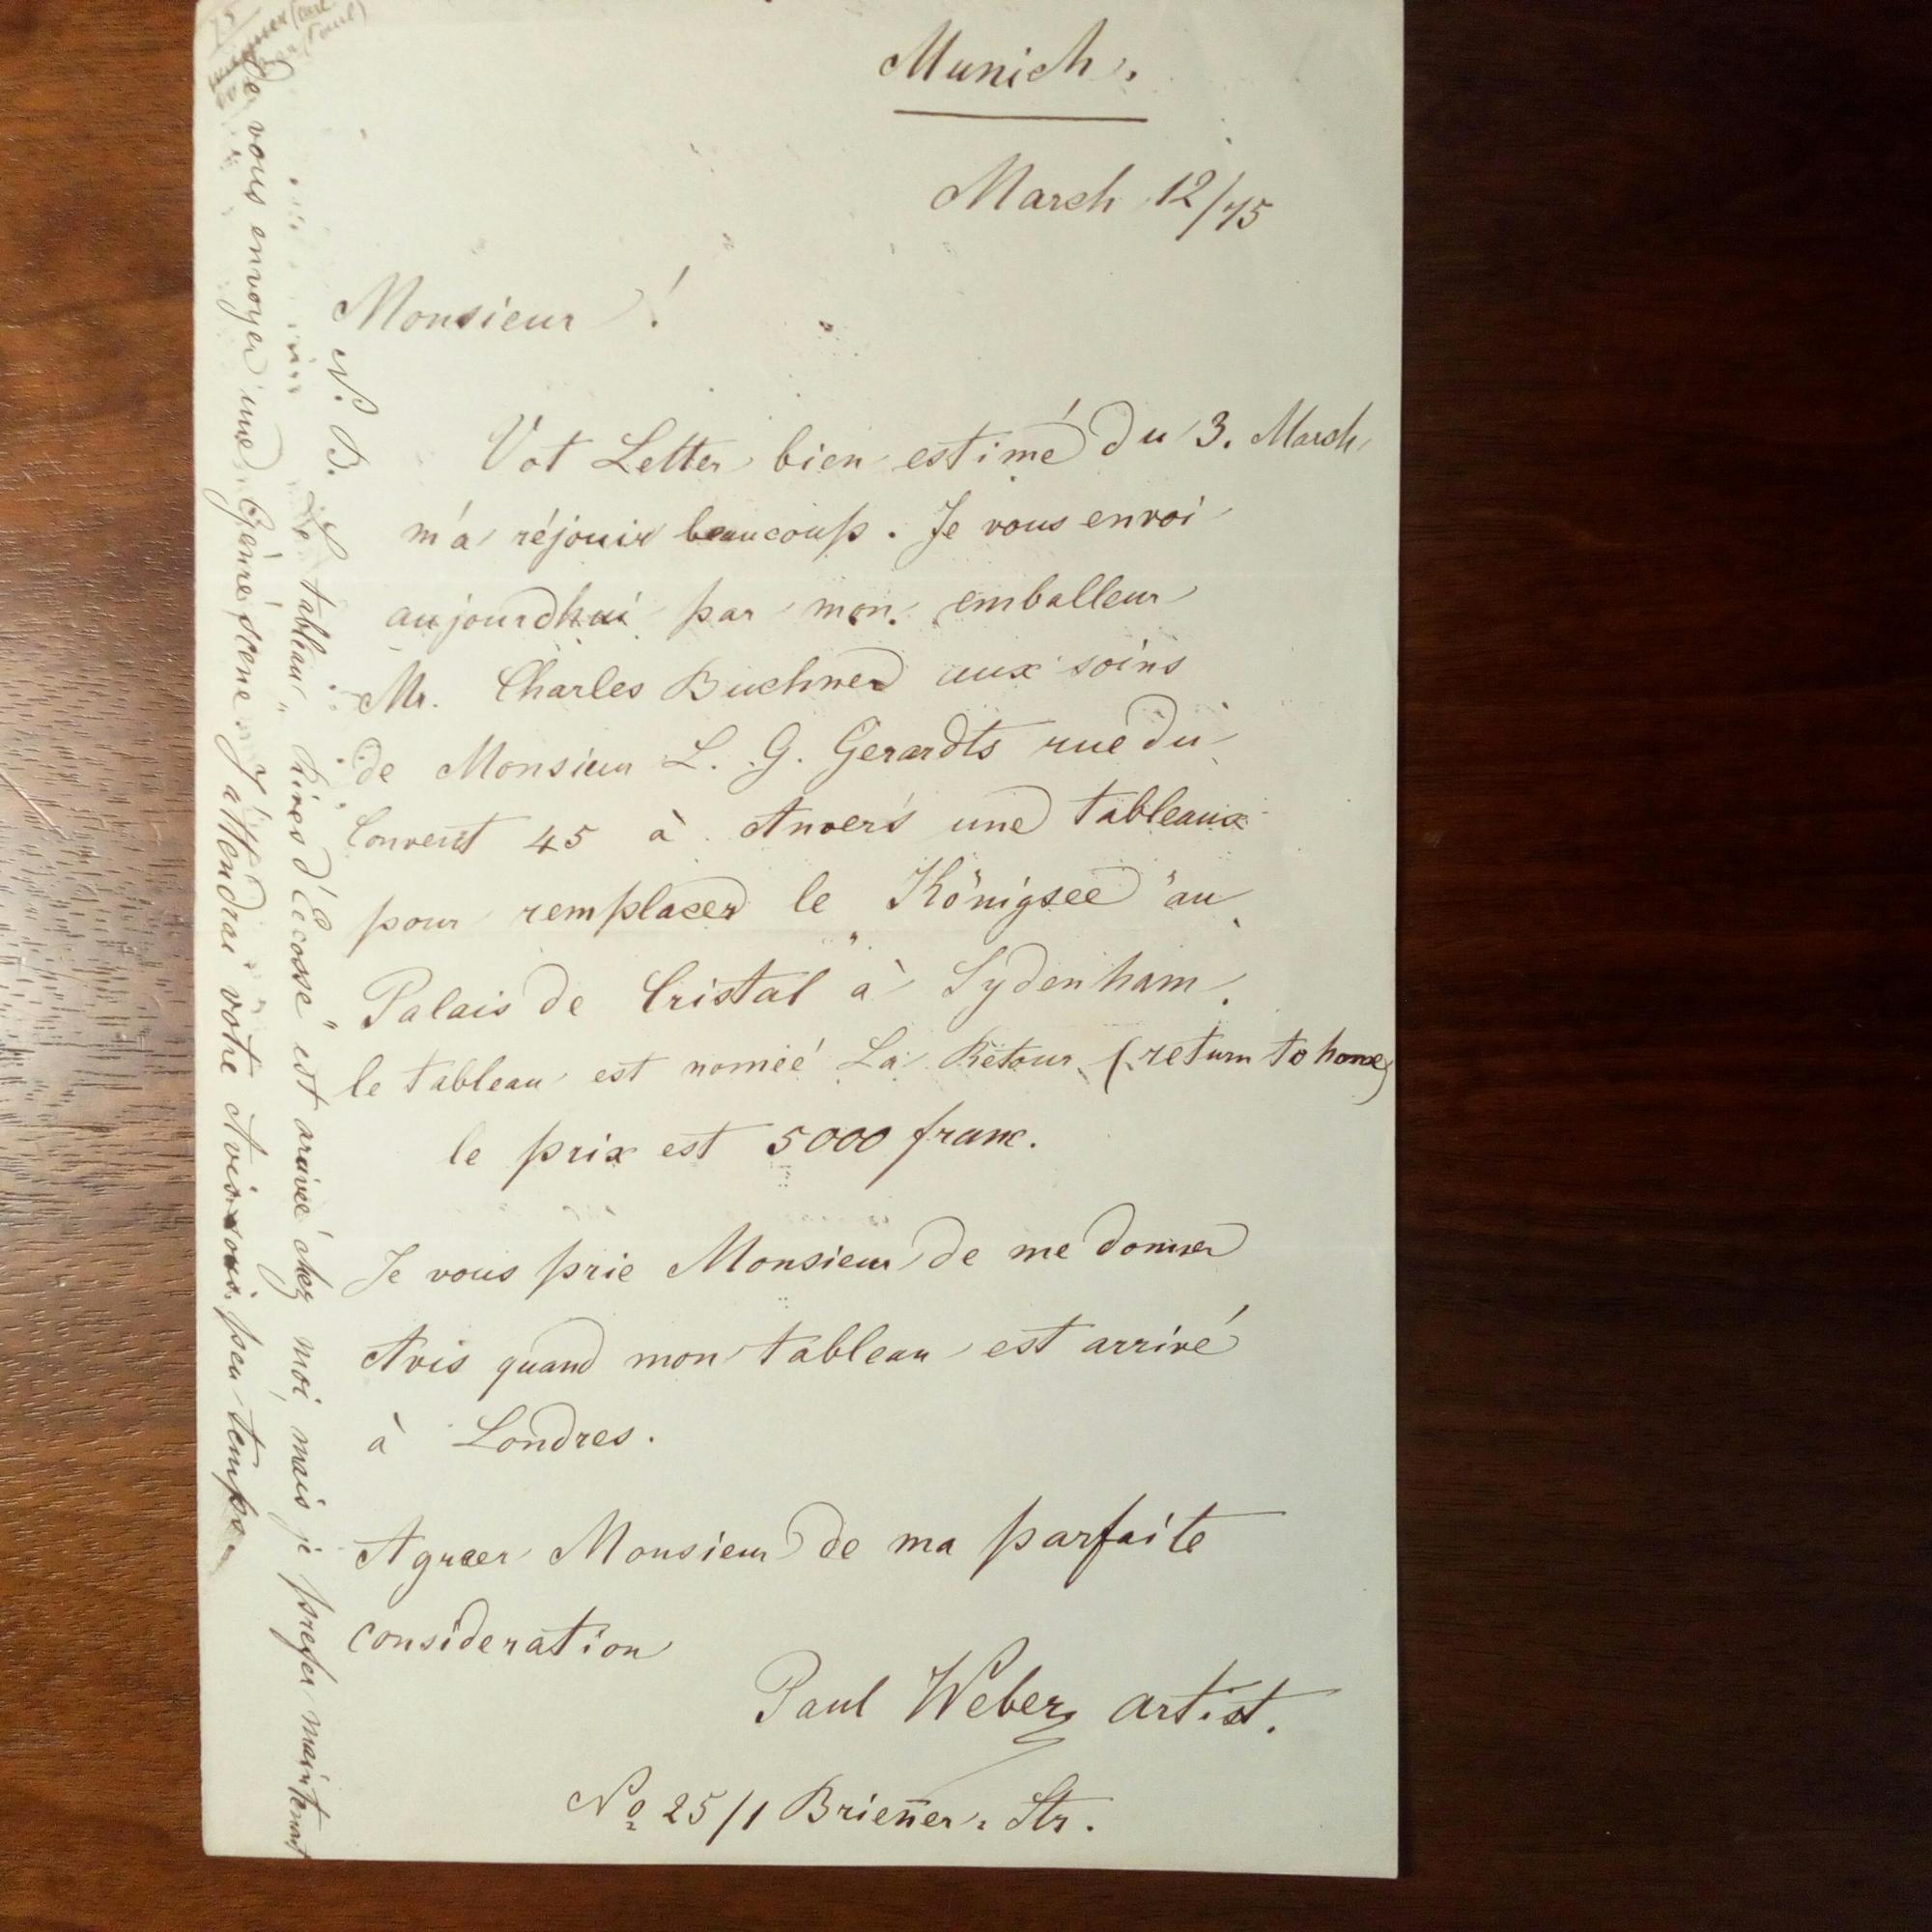 Munich.
March 12/75
Monsieur !
Vot Letter bien estimé du 3. March
m'a réjouir beaucoup. Je vous envoi
aujourdhui par mon emballeur
Mr. Charles Buchner aux soins
de Monsieur L. G. Gerardts rue du
Convent 45 à Anvers une tableaux
pour remplacer le „Königsee" au
Palais de Cristal à Sydenham.
le tableau est nomeé La Retour (return to home)
le prix est 5000 franc.
Je vous prie Monsieur de me donner
Avis quand mon tableau est arrivé
à Londres.
Agreer Monsieur de ma parfaite
consideration
Paul Weber artist.
No 25/1 Brien̄er Str.
N. B. Le tableau „ d'Ecosse" est arrivé chez moi, mais je prefer maintenant
de vous envoyer une Genre scene. J'attendrai votre Avis peu temps.
75
(Paul)